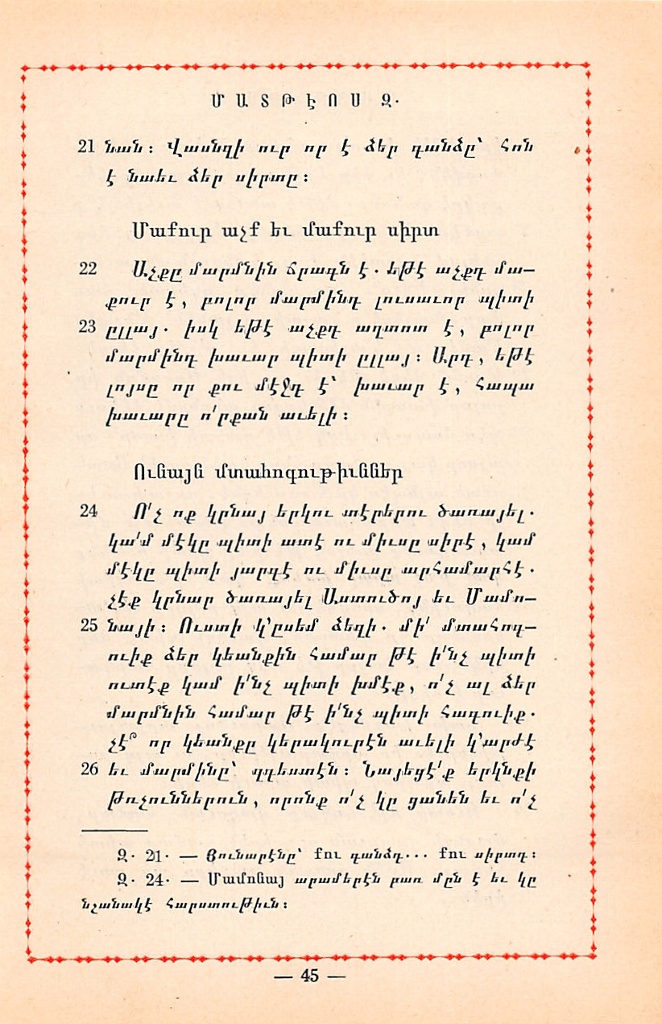 ՄԱՏԹԷՈՍ Զ.
21 նան : Վասնզի ուր որ է ձեր գանձը՝ հոն
է նաեւ ձեր սիրտը :
Մաքուր աչք եւ մաքուր սիրտ
22 Աչքը մարմնին ճրագն է . եթէ աչքդ մա–
քուր է , բոլոր մարմինդ լուսաւոր պիտի
23 ըլլայ . իսկ եթէ աչքդ աղտոտ է , բոլոր
մարմինդ խաւար պիտի ըլլայ : Արդ , եթէ
լոյսը որ քու մէջդ է՝ խաւար է , հապա
խաւարը ո՛րքան աւելի :
Ունայն մտահոգութիւններ
24 Ո՛չ ոք կրնայ երկու տէրերու ծառայել .
կա՛մ մէկը պիտի ատէ ու միւսը սիրէ , կամ
մէկը պիտի յարգէ ու միւսը արհամարհէ .
չէք կրնար ծառայել Աստուծոյ եւ Մամո–
25 նայի : Ուստի կ՚ըսեմ ձեզի . մի՛ մտահոգ–
ուիք ձեր կեանքին համար թէ ի՛նչ պիտի
ուտէք կամ ի՛նչ պիտի խմէք , ո՛չ ալ ձեր
մարմնին համար թէ ի՛նչ պիտի հագուիք .
չէ՞ որ կեանքը կերակուրէն աւելի կ՚արժէ
26 եւ մարմինը՝ զգեստէն : Նայեցէ՛ք երկնքի
թռչուններուն , որոնք ո՛չ կը ցանեն եւ ո՛չ
Զ. 21. — Յունարէնը՝ քու գանձդ... քու սիրտդ :
Զ. 24. — Մամոնայ արամերէն բառ մըն է եւ կը
նշանակէ հարստութիւն :
— 45 —